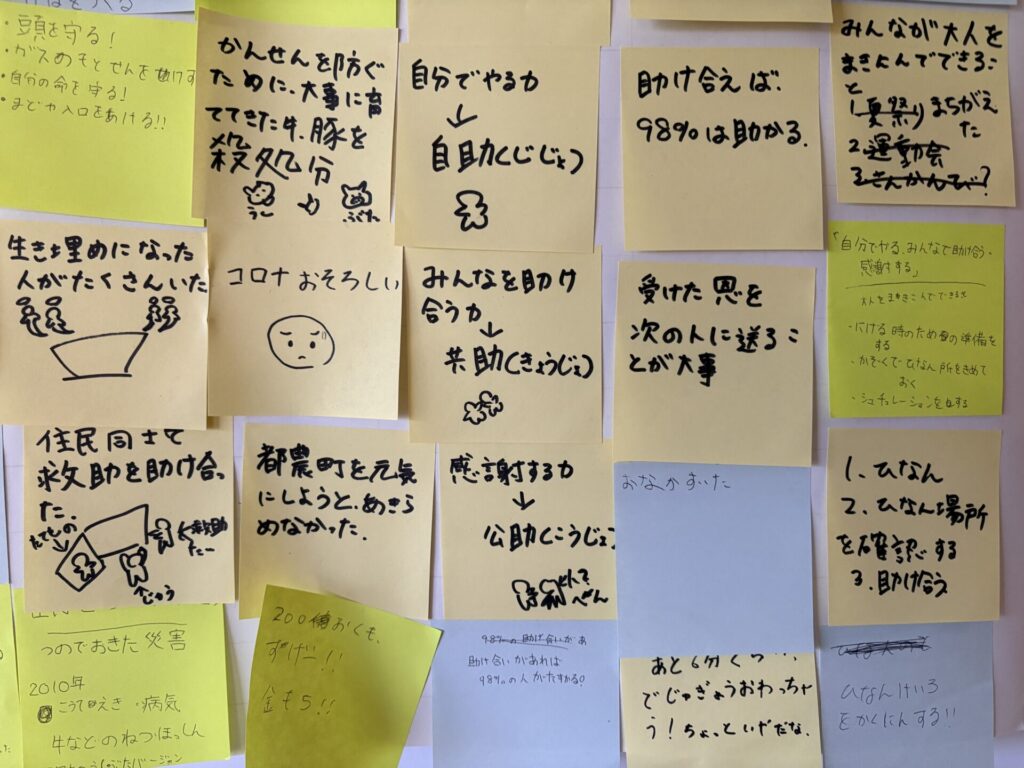 ・頭を守る!
・自分の命を守る!
・まどや入口をあける!!
かんせんを防ぐ
ために、大事に育
ててきた牛、豚を
殺処分
うし
ぶた
自分でやる力
↓
自助(じじょ)
助け合えば、
98%は助かる.
みんなが大人を
まきこんでできるこ
と
1.夏祭り まちがえ
た
2.運動会
生き埋めになった
人がたくさんいた
コロナおそろしい
みんなを助け
合う力
↓
共助(きょうじょ)
受けた恩を
次の人に送るこ
とが大事
「自分でやる、みんなで助け合う・
感謝する」
大人をまきこんでできる
する
・かぞくでひなん所をきめて
おく
住民同士で
救助を助け合っ
た.
たてもの
じゅう
都農町を元気
にしようと、あきら
めなかった.
感謝する力
↓
公助(こうじょ)
おなかすいた
1. ひなん
2. ひなん場所
を確認する
3. 助け合う
つのでおきた災害
2010年
こうていえき・病気
牛などのねつほっしん
200億おくも、
すげー!!
金もち!!
助け合いがあれば
98%の人がたすかる!
でじゅぎょうおわっちゃ
う!ちょっといやだな.
ひなんけいろ
をかくにんする!!